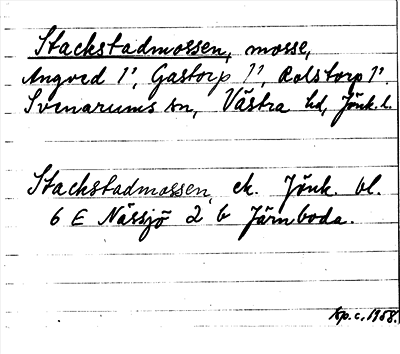 Stackstadmossen, mosse,
Angred 1¹, Gastorp 1¹, Rolstorp 1¹.
Svenarums sn, Västra hd, Jönk. l.
Stackstadmossen, ek. Jönk. bl.
6 E Nässjö 2 b Järnboda.
tp. c. 1958.